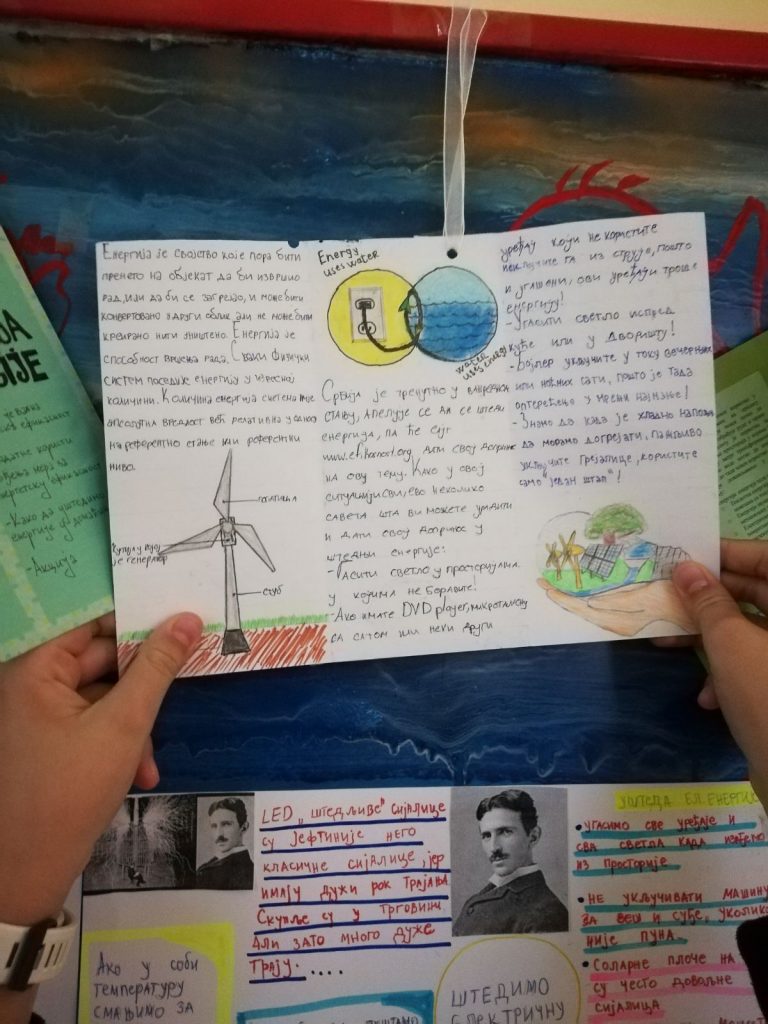 Енергија је својство које мора бити
пренето на објекат да би извршио
рад, или да би се загрејао, и може бити
конвертовано у други облик али не може бити
креирано нити уништено. Енергија је
способност вршења рада. Сваки физички
систем поседује енергију у
количини. Количина енергија система није
апсолутна вредост већ релативна у односу
на референтно стање или референтни
ниво.
лопатица
је генератор
стуб
Energy
uses water
water
uses energy
Србија је тренутно у ванредном
стању, апелује се да се штеди
енергија, па ће сајт
дати свој допринос
на ову тему. Како у овој
ситуацији сви, ево неколико
савета шта ви можете урадити
и дати свој допринос у
штедњи енергије:
- Гасити светло у просторијама
у којима не боравите!
- Ако имате DVD player, микроталасну
са сатом или неки други
уређај који не користите
искључите га из струје, пошто
и угашени, ови уређаји троше
енергију!
- Угасити светло испред
куће или у дворишту!
- Бојлер укључите у току вечерњих
или ноћних сати, пошто је тада
оптерећење у мрежи најмање!
- Знамо да када је хладно напољу
да морамо догрејати, пажљиво
укључите грејалице, користите
само "један штап"!
- Како да уштедимо
- Акција
LED „штедљиве" сијалице
су јефтиније него
класичне сијалице, јер
имају дужи рок трајања
Скупље су у трговини.
Али зато много дуже
трају.....
Ако у соби
температуру
смањимо за
ШТЕДИМО
ЕЛЕКТРИЧНУ
УШТЕДА ЕЛ. ЕНЕРГИЈЕ
• угасимо све уређаје и
сва светла када изађемо
из просторије
• НЕ укључивати машину
за веш и суђе, уколико
није пуна.
• Соларне плоче на
су често довољне
сијалица